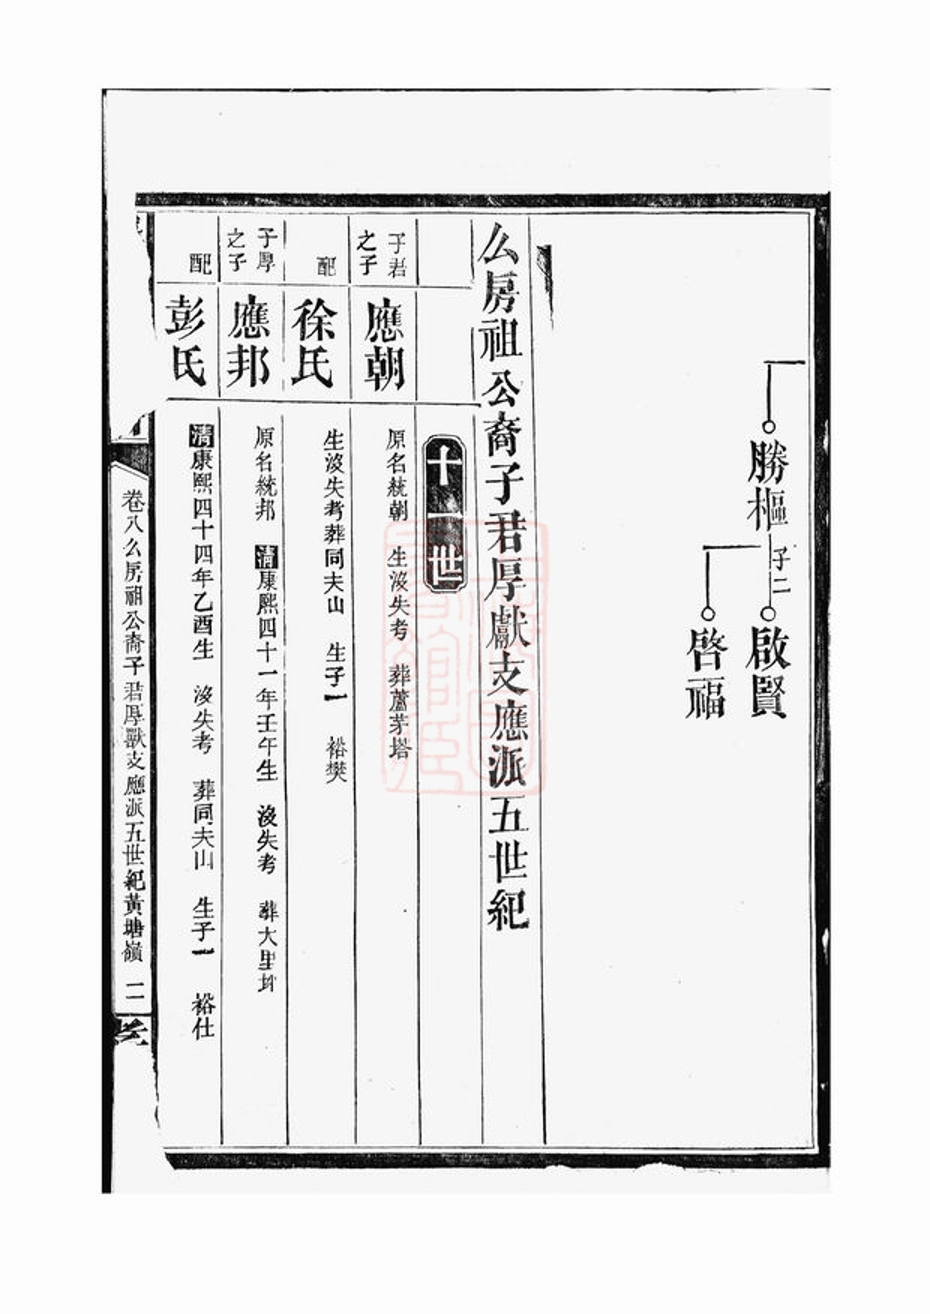 勝樞
子二
啟賢
啓福
么房祖公裔子君厚獻支應派五世紀
十一世
子君之子
應朝
原名統朝 生沒失考 葬蘆茅塔
配
徐氏
生沒失考葬同夫山 生子一 裕樊
子厚之子
應邦
原名統邦 清康熙四十一年壬午生 沒失考 葬大里
配
彭氏
清康熙四十四年乙酉生 沒失考 葬同夫山 生子一 裕仕
卷八么房祖公裔子君厚獻支應派五世紀黃塘嶺 二